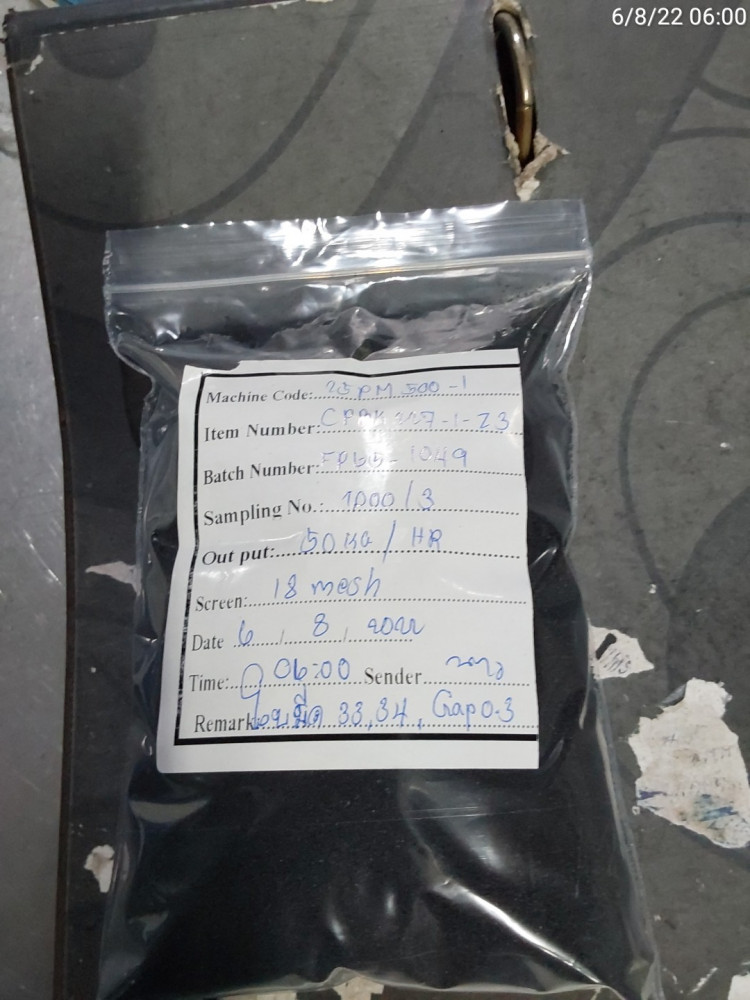 6/8/22 06:00
Machine Code: 25PM 500-1
Item Number: -1-Z3
Batch Number: -1049
Sampling No.: 1000/3
Out put: 50 KG / HR
Screen: 18 mesh
Date 6 / 8 / 2022
Time: 06:00 Sender
Remark ใบมีด 33,34, Gap 0.3